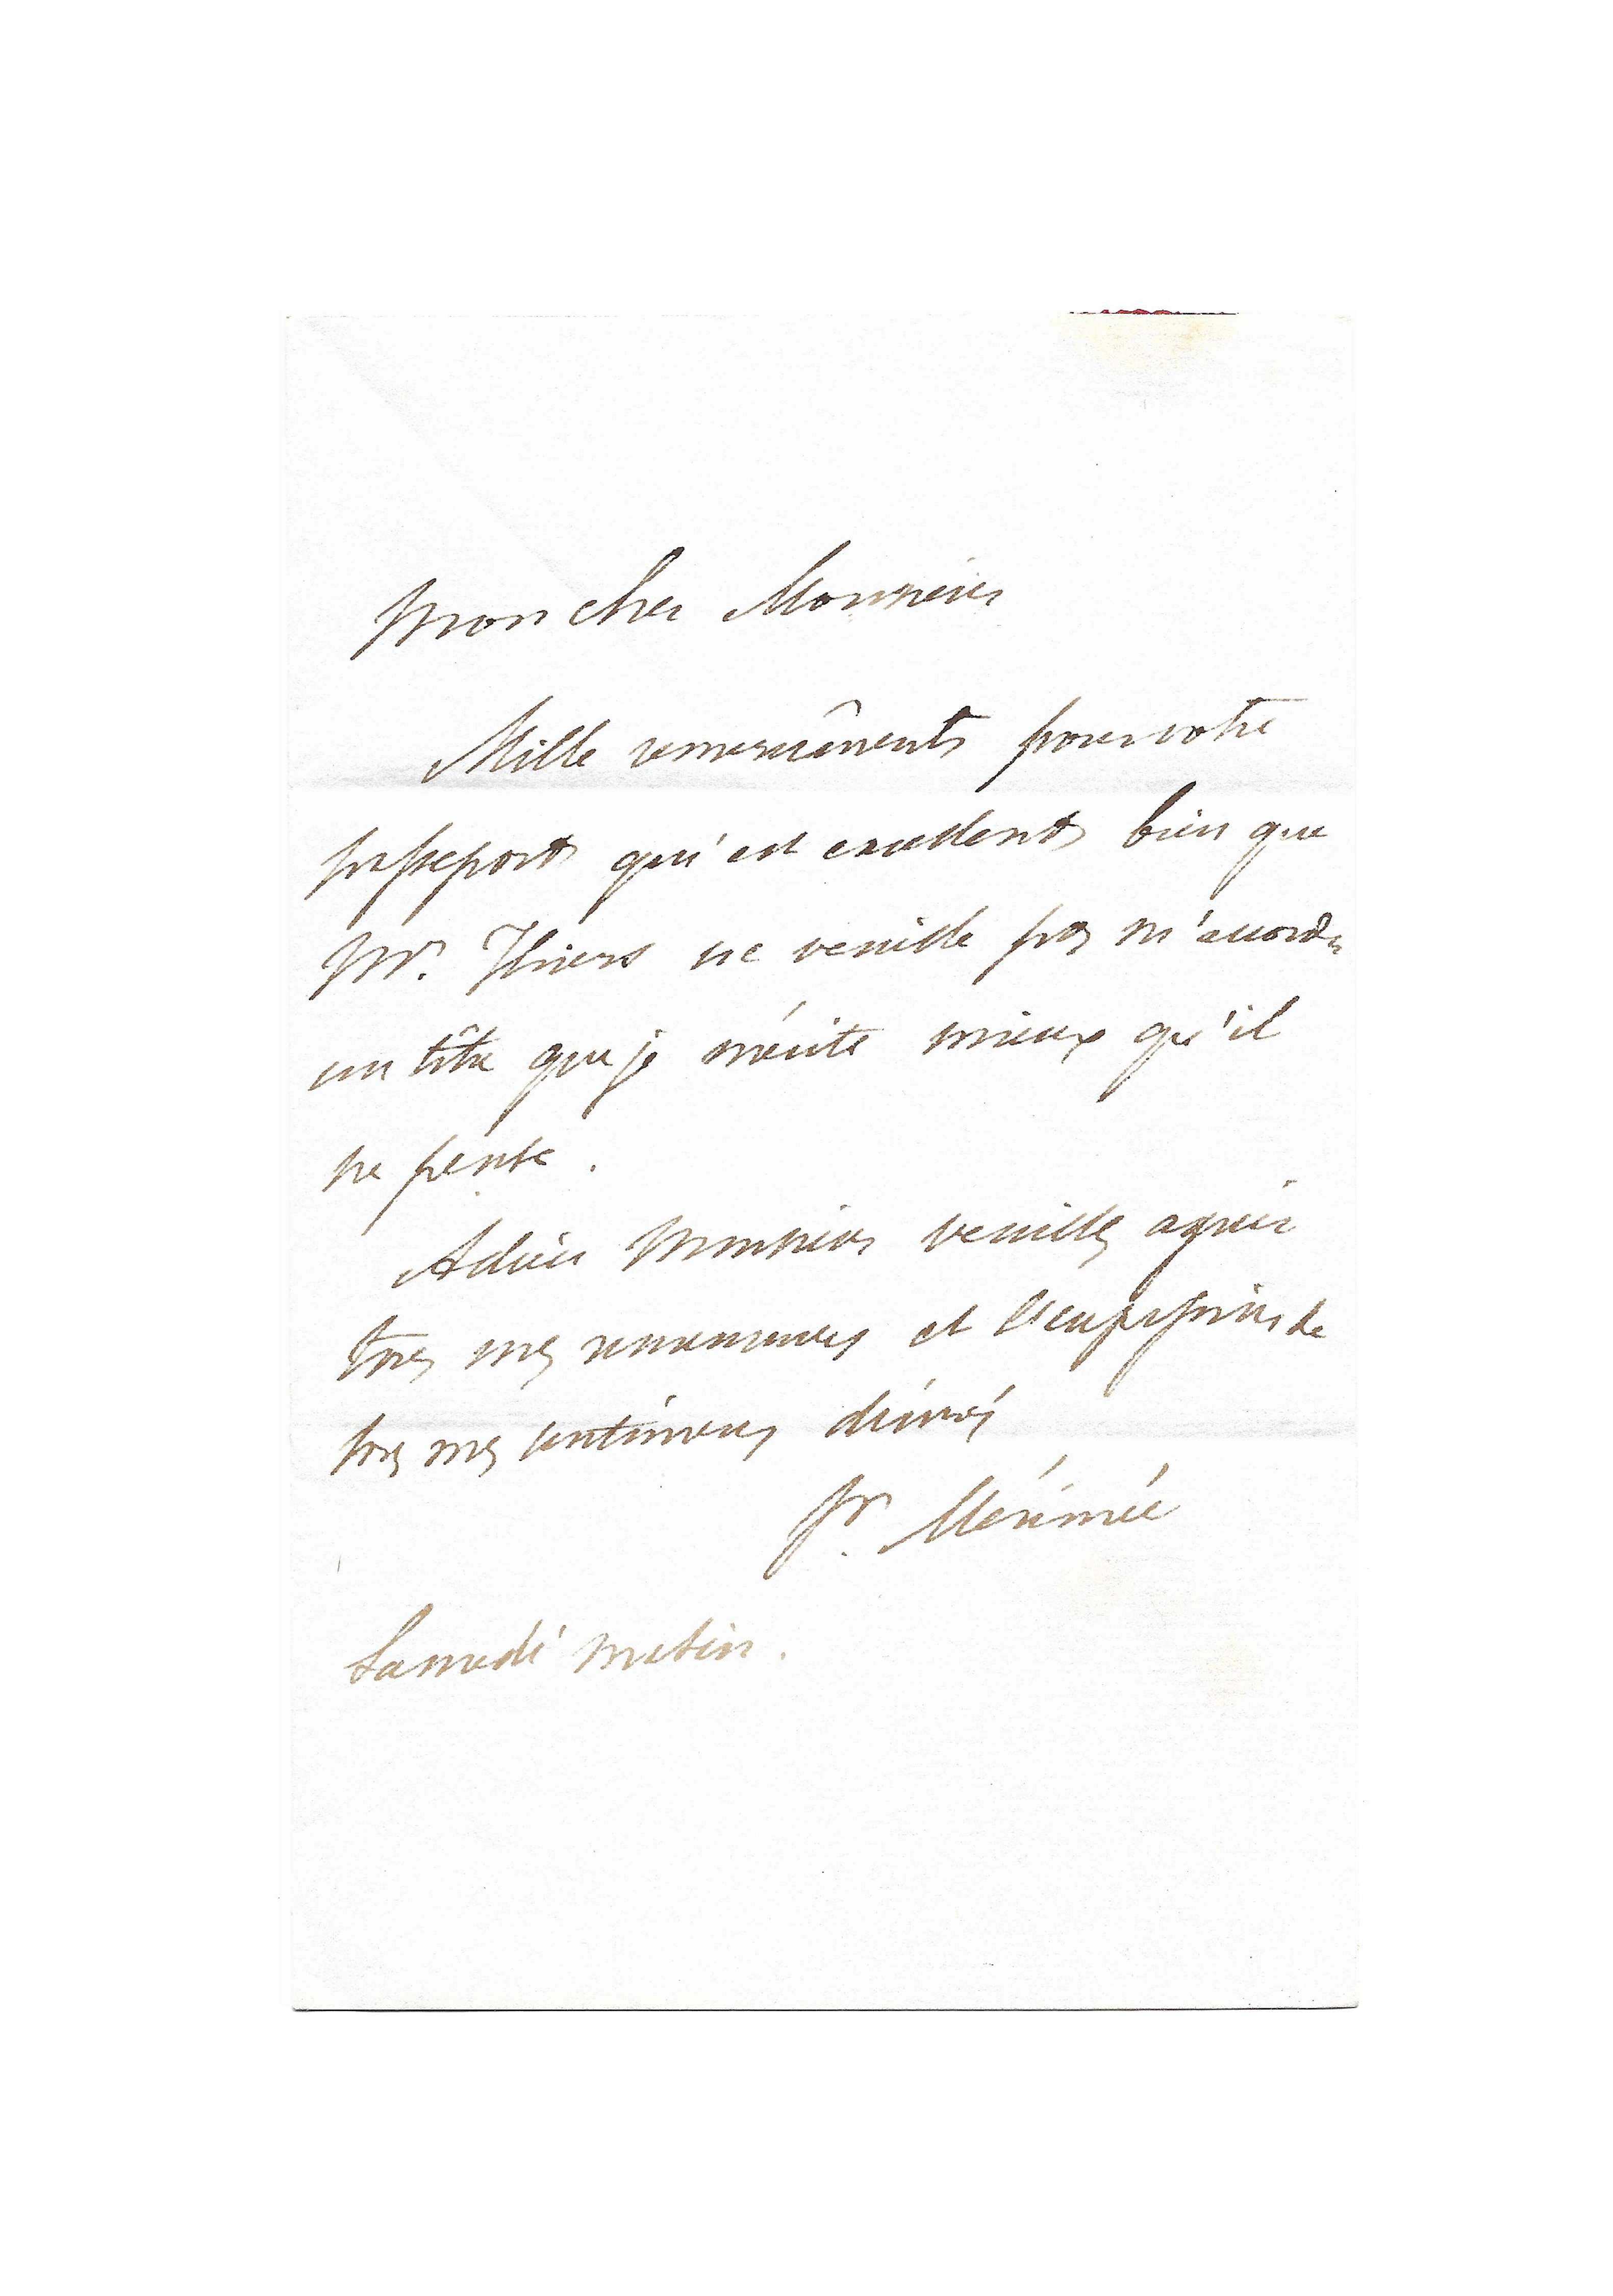 Mon cher Monsieur
Mille remerciements pour votre
passeport qui est excellent bien que
Mr. Thiers ne veuille pas m'accorder
un titre que je mérite mieux qu'il
ne pense.
Adieu Monsieur veuillez agréer
tous mes remerciements et l'expression de
tous mes sentimens dévoués
Pr. Mérimée
Samedi matin.